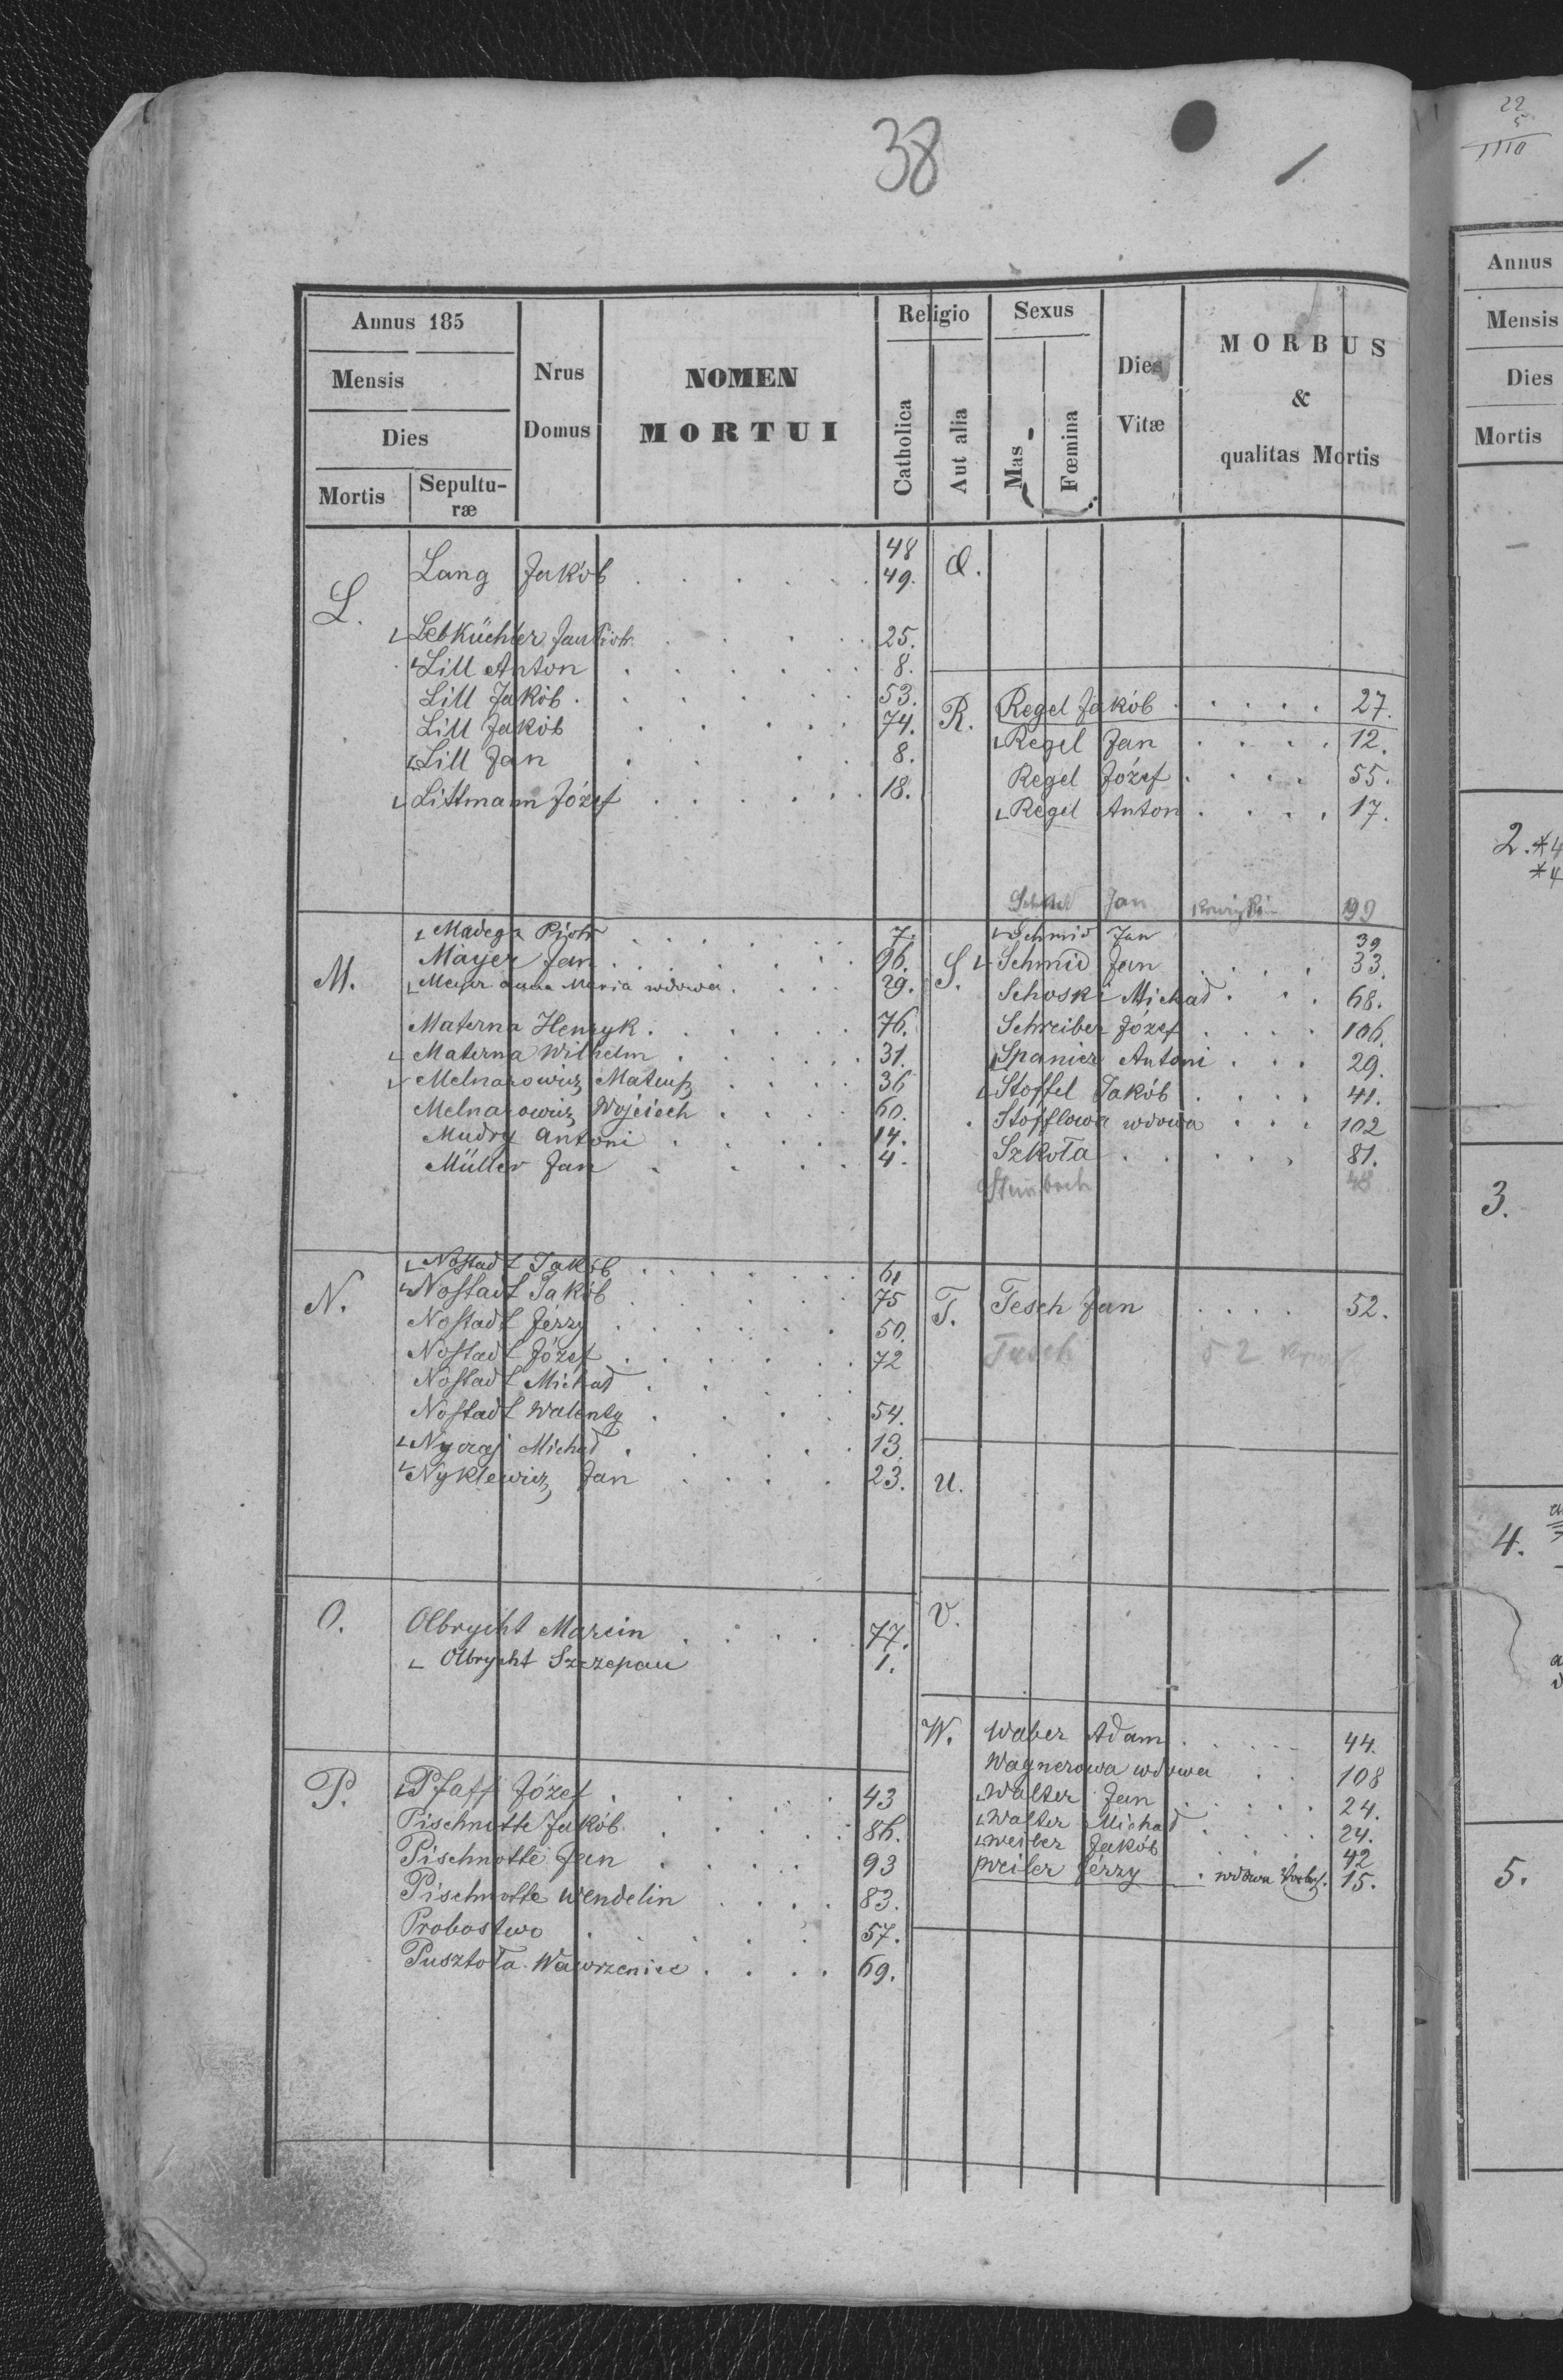 38
Annus 185
Mensis
Dies
Mortis
Sepultu-
ræ
Nrus
Domus
NOMEN
MORTUI
Religio
Catholica
Aut alia
Sexus
Mas
Fœmina
Dies
Vitæ
MORBUS
&
qualitas Mortis
L.
Lang Jakób . . . . . . 48
49.
Lebküchler Jan Piotr . . . . . 25.
Lill Anton . . . . . . 8.
Lill Jakób . . . . . . 53.
Lill Jakób . . . . . . 74.
Lill Jan . . . . 8.
Littmann Józef . . . . . . 18.
M.
Madega Piotr . . . . . . . 7.
Mayer Jan . . . . . . . 96.
Mayer Anna Maria wdowa . . . . 29.
Materna Henryk . . . . . . 76.
Materna Wilhelm . . . . . . 31.
Melnarowicz Mateusz . . . . 36
Melnarowicz Wojciech . . . . 60.
Mudry Antoni . . . . 14.
Müller Jan . . . . 4.
N.
Nostadt Jakób . . . . . . . 61
Nostadt Jakób . . . . . 75
Nostadt Jerzy . . . . . . 50.
Nostadt Józef . . . . . . 72
Nostadt Michał . . . .
Nostadt Walenty . . . . 54.
Michał . . . . . 13.
Nyklewicz Jan . . . . 23.
O.
Olbrycht Marcin . . . . . 77.
Olbrycht Szczepan 1.
P.
Pfaff Józef . . . . . . 43
Pischnotte Jakób . . . . . 86.
Pischnotte Jan . . . . . 93
Pischnotte Wendelin . . . . 83.
Probostwo . . . . . 57.
Pusztoła Wawrzeniec . . . . 69.
Q.
R.
Regel Jakób . . . . . 27.
Regel Jan . . . . 12.
Regel Józef . . . . 55.
Regel Anton . . . . 17.
Jan 99
S.
Schmid Jan 39
Schmid Jan . . . . 33.
Schoski Michał . . . 68.
Schreiber Józef . . . . 106.
Spanier Antoni . . . 29.
Stoffel Jakób . . . . 41.
Stofflowa wdowa . . . 102
Szkoła . . . . . 81.
48
T.
Tesch Jan . . . . 52.
Tesch 52
U.
V.
W.
Waber Adam . . . . . 44.
Wagnerowa wdowa . . 108
Walter Jan . . . . . 24.
Walter Michał . . . . 24.
Weiber Jakób 42
Weiler Jerzy . wdowa 15.
22
5
1110
Annus
Mensis
Dies
Mortis
2. *4
*4
3.
4.
5.